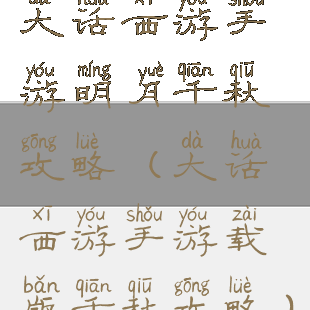 dà huà xī yóu shǒu
大话西游手
yóu míng yuè qiān qiū
游明月千秋
gōng lüè dà huà
攻略(大话
xī yóu shǒu yóu zài
西游手游载
bǎn qiān qiū gōng lüè
版千秋攻略)